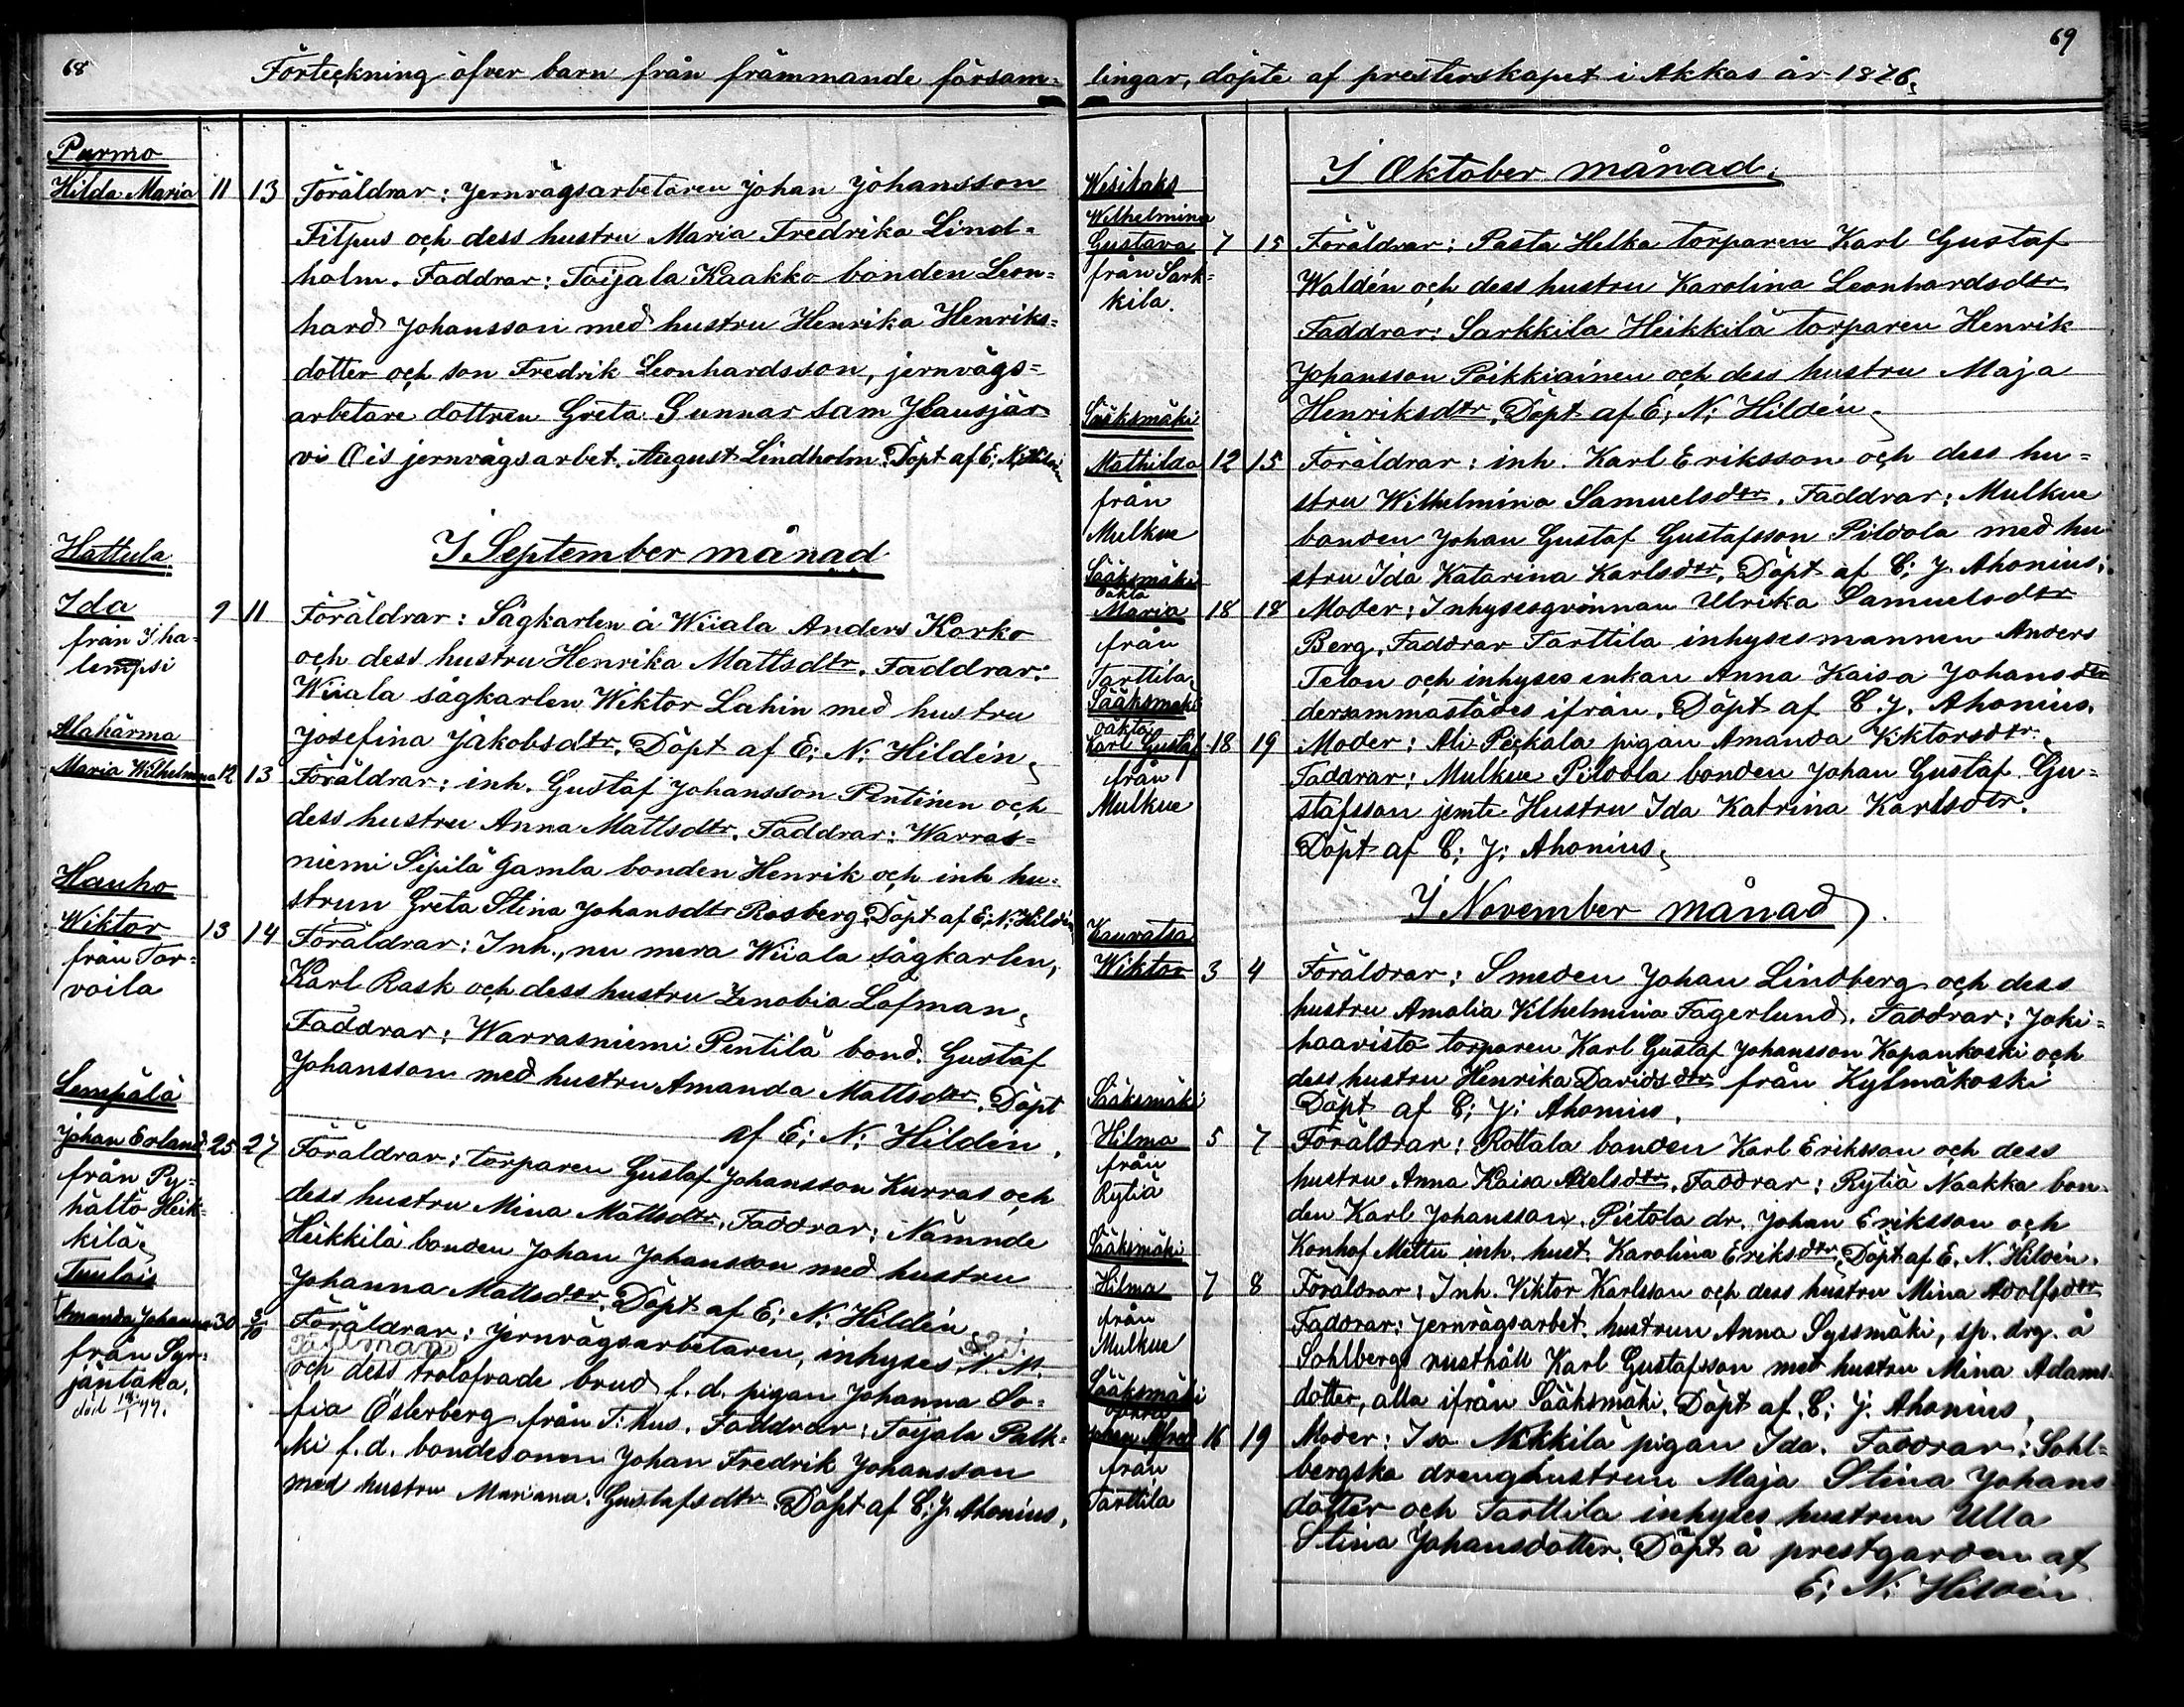 68
Förteckning öfver barn från främmande försam-
Purmo
Hilda Maria 11 13 Föräldrar: Jernvägsarbetaren Johan Johansson
Filpus och dess hustru Maria Fredrika Lind-
holm. Faddrar: Toijala Kaakko bonden Leon-
hard Johansson med hustru Henrika Henriks-
dotter och son Fredrik Leonhardsson, jernvägs-
arbetare dottren Greta Gunnar sam Hausjär-
vi Ois jernvägsarbet. August Lindholm. Döpt af E; N; Hildén
I September månad
Hattula
Ida 9 11 Föräldrar: Sågkarlen å Wiiala Anders Korko
från Iha-
lempsi
och dess hustru Henrika Mattsdtr. Faddrar:
Wiiala sågkarlen Wiktor Lahin med hustru
Josefina Jakobsdtr. Döpt af E; N; Hildén
Alahärmä
Maria Wilhelmina 12 13 Föräldrar: inh. Gustaf Johansson Pentinen och
dess hustru Anna Mattsdtr. Faddrar: Warras-
niemi Sipilä gamla bonden Henrik och inh hu-
strun Greta Stina Johansdtr Rosberg. Döpt af E; N; Hildén
Hauho
Wiktor 13 14 Föräldrar: Inh., nu mera Wiiala sågkarlen,
från Tor-
voila
Karl Rask och dess hustru Zenobia Löfman,
Faddrar: Warrasniemi Pentilä bond. Gustaf
Johansson med hustru Amanda Mattsdtr. Döpt
af E; N; Hildén.
Lempälä
Johan Erland 25 27 Föräldrar: torparen Gustaf Johansson Kurras och
från Py-
hältö Heik-
kilä
dess hustru Mina Mattsdtr. Faddrar: Nämnde
Heikkilä bonden Johan Johansson med hustru
Johanna Mattsdtr. Döpt af E; N; Hildén
Tuulois
Amanda Johanna 30 5/10 Föräldrar: Jernvägsarbetaren, inhyses N. N.
från Syr-
jäntaka,
död 18/1 77.
och dess trolofvade brud f. d. pigan Johanna So-
fia Österberg från T: hus. Faddrar: Toijala Palk-
ki f. d. bondesonen Johan Fredrik Johansson
med hustru Mariana Gustafsdtr. Döpt af C; J. Ahonius,
69
lingar, döpte af presterskapet i Akkas år 1876,
I Oktober månad.
Wesilaks
Wilhelmina
Gustava 7 15 Föräldrar: Pasta Helka torparen Karl Gustaf
från Sark-
kila.
Waldén och dess hustru Karolina Leonhardsdtr
Faddrar: Sarkkila Heikkilä torparen Henrik
Johansson Poikkiainen och dess hustru Maja
Henriksdtr. Döpt af E; N; Hildén
Sääksmäki
Mathilda 12 15 Föräldrar: inh. Karl Eriksson och dess hu-
från
Mulkue
stru Wilhelmina Samuelsdtr. Faddrar: Mulkue
bonden Johan Gustaf Gustafsson Pildola med hu
stru Ida Katarina Karlsdtr. Döpt af C; J. Ahonius;
Sääksmäki
oäkta
Maria 18 18 Moder: Inhysesqvinnan Ulrika Samuelsdtr
från
Tarttila
Berg. Faddrar Tarttila inhysesmannen Anders
Telon och inhyses enkan Anna Kaisa Johansdtr
dersammastädes ifrån. Döpt af C. J. Ahonius.
Sääksmäki
oäkta
Karl Gustaf 18 19 Moder: Ali Peckala pigan Amanda Viktorsdtr.
från
Mulkue
Faddrar: Mulkue Pildola bonden Johan Gustaf Gu-
stafsson jemte Hustru Ida Katrina Karlsdtr.
Döpt af C; J; Ahonius
I November månad
Kauvatsa
Wiktor 3 4 Föräldrar: Smeden Johan Lindberg och dess
hustru Amalia Vilhelmina Fagerlund. Faddrar: Joki-
haavisto torparen Karl Gustaf Johansson Kapankoski och
dess hustru Henrika Davidsdtr från Kylmäkoski
Döpt af C; J; Ahonius.
Sääksmäki
Hilma 5 7 Föräldrar: Rottala bonden Karl Eriksson och dess
från
Rytiä
hustru Anna Kaisa Axelsdtr. Faddrar: Rytiä Naakka bon-
den Karl Johansson, Pietola dr. Johan Eriksson och
Konhof Mettu inh. hust. Karolina Eriksdtr. Döpt af E. N. Hildén.
Sääksmäki
Hilma 7 8 Föräldrar: Inh. Viktor Karlsson och dess hustru Mina Adolfsdtr
från
Mulkue
Faddrar: Jernvägsarbet. hustrun Anna Syssmäki, sp. drg. å
Sohlbergs rusthåll Karl Gustafsson med hustru Mina Adams-
dotter, alla ifrån Sääksmäki. Döpt af. C; J. Ahonius,
Sääksmäki
oäkta
Johan Alfred 16 19 Moder: Iso Nikkilä pigan Ida. Faddrar: Sohl-
från
Tarttila
bergska drenghustrun Maja Stina Johans
dotter och Tarttila inhyses hustrun Ulla
Stina Johansdotter. Döpt å prestgarden af
E; N; Hildén